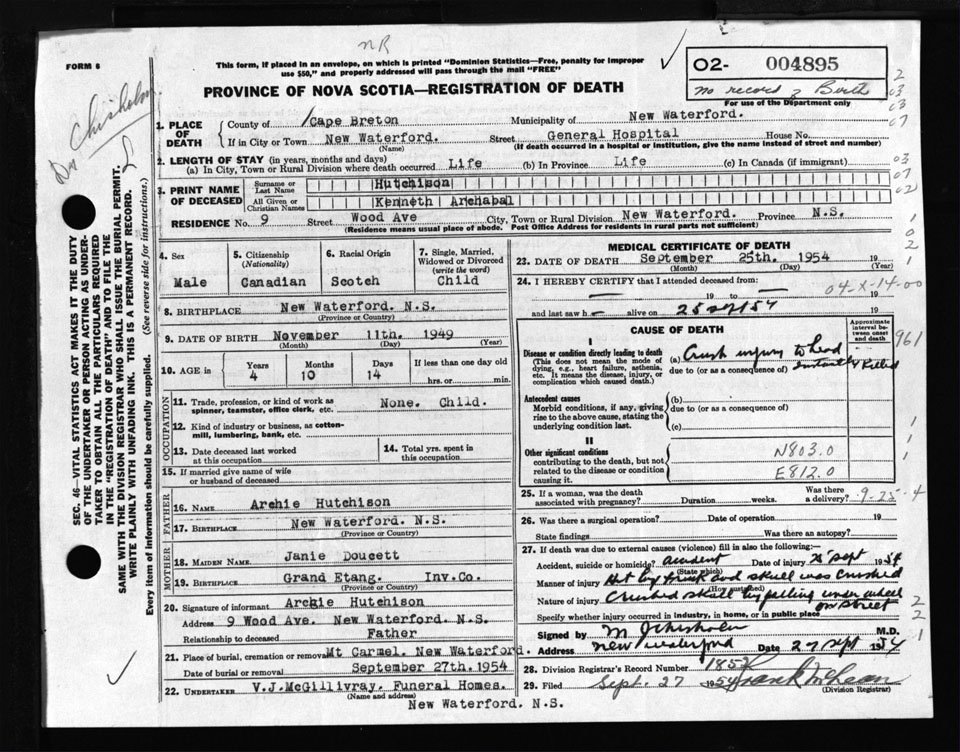 NR
FORM 6
This form, if placed in an envelope, on which is printed "Dominion Statistics—Free, penalty for improper
use $50," and properly addressed will pass through the mail "FREE"
O2- 004895
no record of Birth
For use of the Department only
PROVINCE OF NOVA SCOTIA—REGISTRATION OF DEATH
Dr Chisholm
SEC. 46—VITAL STATISTICS ACT MAKES IT THE DUTY
OF THE UNDERTAKER OR PERSON ACTING AS UNDER-
TAKER TO OBTAIN ALL THE PARTICULARS REQUIRED
IN THE "REGISTRATION OF DEATH" AND TO FILE THE
SAME WITH THE DIVISION REGISTRAR WHO SHALL ISSUE THE BURIAL PERMIT.
WRITE PLAINLY WITH UNFADING INK. THIS IS A PERMANENT RECORD.
Every item of information should be carefully supplied. (See reverse side for instructions.)
1. PLACE OF DEATH
County of Cape Breton Municipality of New Waterford.
If in City or Town New Waterford. Street General Hospital House No.
(Name) (If death occurred in a hospital or institution, give the name instead of street and number)
2. LENGTH OF STAY (in years, months and days)
(a) In City, Town or Rural Division where death occurred Life (b) In Province Life (c) In Canada (if immigrant)
3. PRINT NAME OF DECEASED
Surname or Last Name Hutchison
All Given or Christian Names Kenneth Archabal
RESIDENCE No. 9 Street Wood Ave City, Town or Rural Division New Waterford. Province N.S.
(Residence means usual place of abode. Post Office Address for residents in rural parts not sufficient)
4. Sex Male
5. Citizenship (Nationality) Canadian
6. Racial Origin Scotch
7. Single, Married, Widowed or Divorced (write the word) Child
8. BIRTHPLACE New Waterford. N.S.
(Province or Country)
9. DATE OF BIRTH November 11th. 1949
(Month) (Day) (Year)
10. AGE in Years 4 Months 10 Days 14 If less than one day old hrs. or min.
OCCUPATION
11. Trade, profession, or kind of work as spinner, teamster, office clerk, etc. None. Child.
12. Kind of industry or business, as cotton-mill, lumbering, bank, etc.
13. Date deceased last worked at this occupation
14. Total yrs. spent in this occupation
15. If married give name of wife or husband of deceased
FATHER
16. NAME Archie Hutchison
17. BIRTHPLACE New Waterford. N.S.
(Province or Country)
MOTHER
18. MAIDEN NAME Janie Doucett
19. BIRTHPLACE Grand Etang. Inv.Co.
(Province or Country)
20. Signature of informant Archie Hutchison
Address 9 Wood Ave. New Waterford. N.S.
Relationship to deceased Father
21. Place of burial, cremation or removal Mt Carmel. New Waterford.
Date of burial or removal September 27th.1954
22. UNDERTAKER V.J.McGillivray. Funeral Homes.
(Name and address)
New Waterford. N.S.
MEDICAL CERTIFICATE OF DEATH
23. DATE OF DEATH September 25th. 1954 19
(Month) (Day) (Year)
24. I HEREBY CERTIFY that I attended deceased from:
19 to 19
04-X-14-00
and last saw h alive on 25 sept 54 19
CAUSE OF DEATH
Approximate interval between onset and death
I
Disease or condition directly leading to death
(This does not mean the mode of dying, e.g., heart failure, asthenia, etc. It means the disease, injury, or complication which caused death.)
(a) Crush injury to head
due to (or as a consequence of) Instantly Killed
961
Antecedent causes
Morbid conditions, if any, giving rise to the above cause, stating the underlying condition last.
(b)
due to (or as a consequence of)
(c)
II
Other significant conditions
contributing to the death, but not related to the disease or condition causing it.
N803.0
E812.0
25. If a woman, was the death associated with pregnancy? Duration weeks. Was there a delivery?
9-25-4
26. Was there a surgical operation? Date of operation 19
State findings Was there an autopsy?
27. If death was due to external causes (violence) fill in also the following:—
Accident, suicide or homicide? accident Date of injury 25 sept 1954
(State which)
Manner of injury Hit by truck and skull was crushed
(How sustained)
Nature of injury Crushed skull by falling under wheel
on street
Specify whether injury occurred in industry, in home, or in public place
Signed by M J Chisholm M.D.
Address New Waterford Date 27 sept 1954
28. Division Registrar's Record Number 1852
29. Filed Sept. 27 1954 Frank McLean
(Division Registrar)